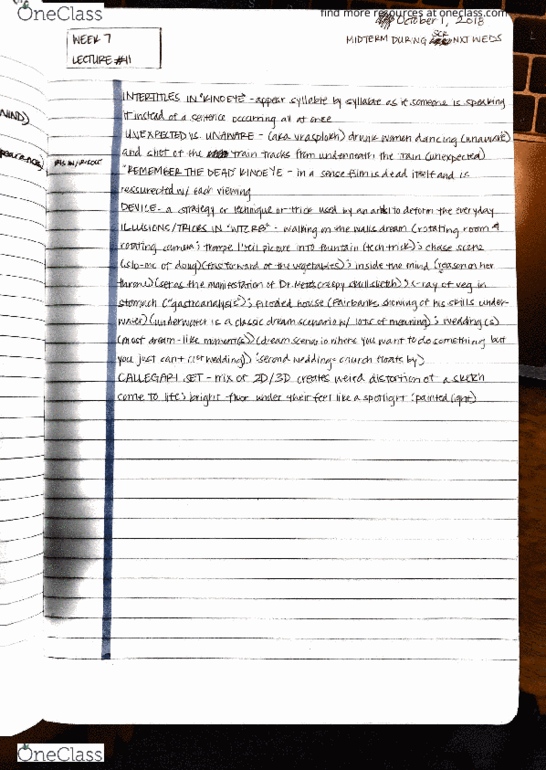 OneClass
find more resources at oneclass.com
October 1, 2018
WEEK 7
LECTURE #11
MIDTERM DURING SCR NXT WEDS
INTERTITLES IN "KINOEYE" - appear syllable by syllable as if someone is speaking
it instead of a sentence occurring all at once
UNEXPECTED VS. UNAWARE - (aka vrasplokh) drunk women dancing (unaware)
and shot of the train tracks from underneath the train (unexpected)
REMEMBER THE DEAD KINOEYE - in a sense film is dead itself and is
ressurected w/ each viewing
DEVICE - a strategy or technique or trick used by an artist to deform the everyday
ILLUSIONS/TRICKS IN - walking on the walls dream (rotating room &
rotating camera; picture into fountain (tech trick); chase scene
(slo-mo of doug)(fast forward of the vegetables); inside the mind (reason on her
throne)(set as the manifestation of Dr. creepy skull sketch)) x-ray of veg. in
stomach ("gastricanalysis"); flooded house (Fairbanks showing off his skills under-
water)(underwater is a classic dream scenario w/ lots of meaning); wedding(s)
(most dream-like moment(s))(dream scenario where you want to do something but
you just can't (1st wedding)) (second wedding = church floats by)
CALLEGARI SET - mix of 2D/3D creates weird distortion of a sketch
come to life; bright floor under their feet like a spotlight (painted light)
OneClass